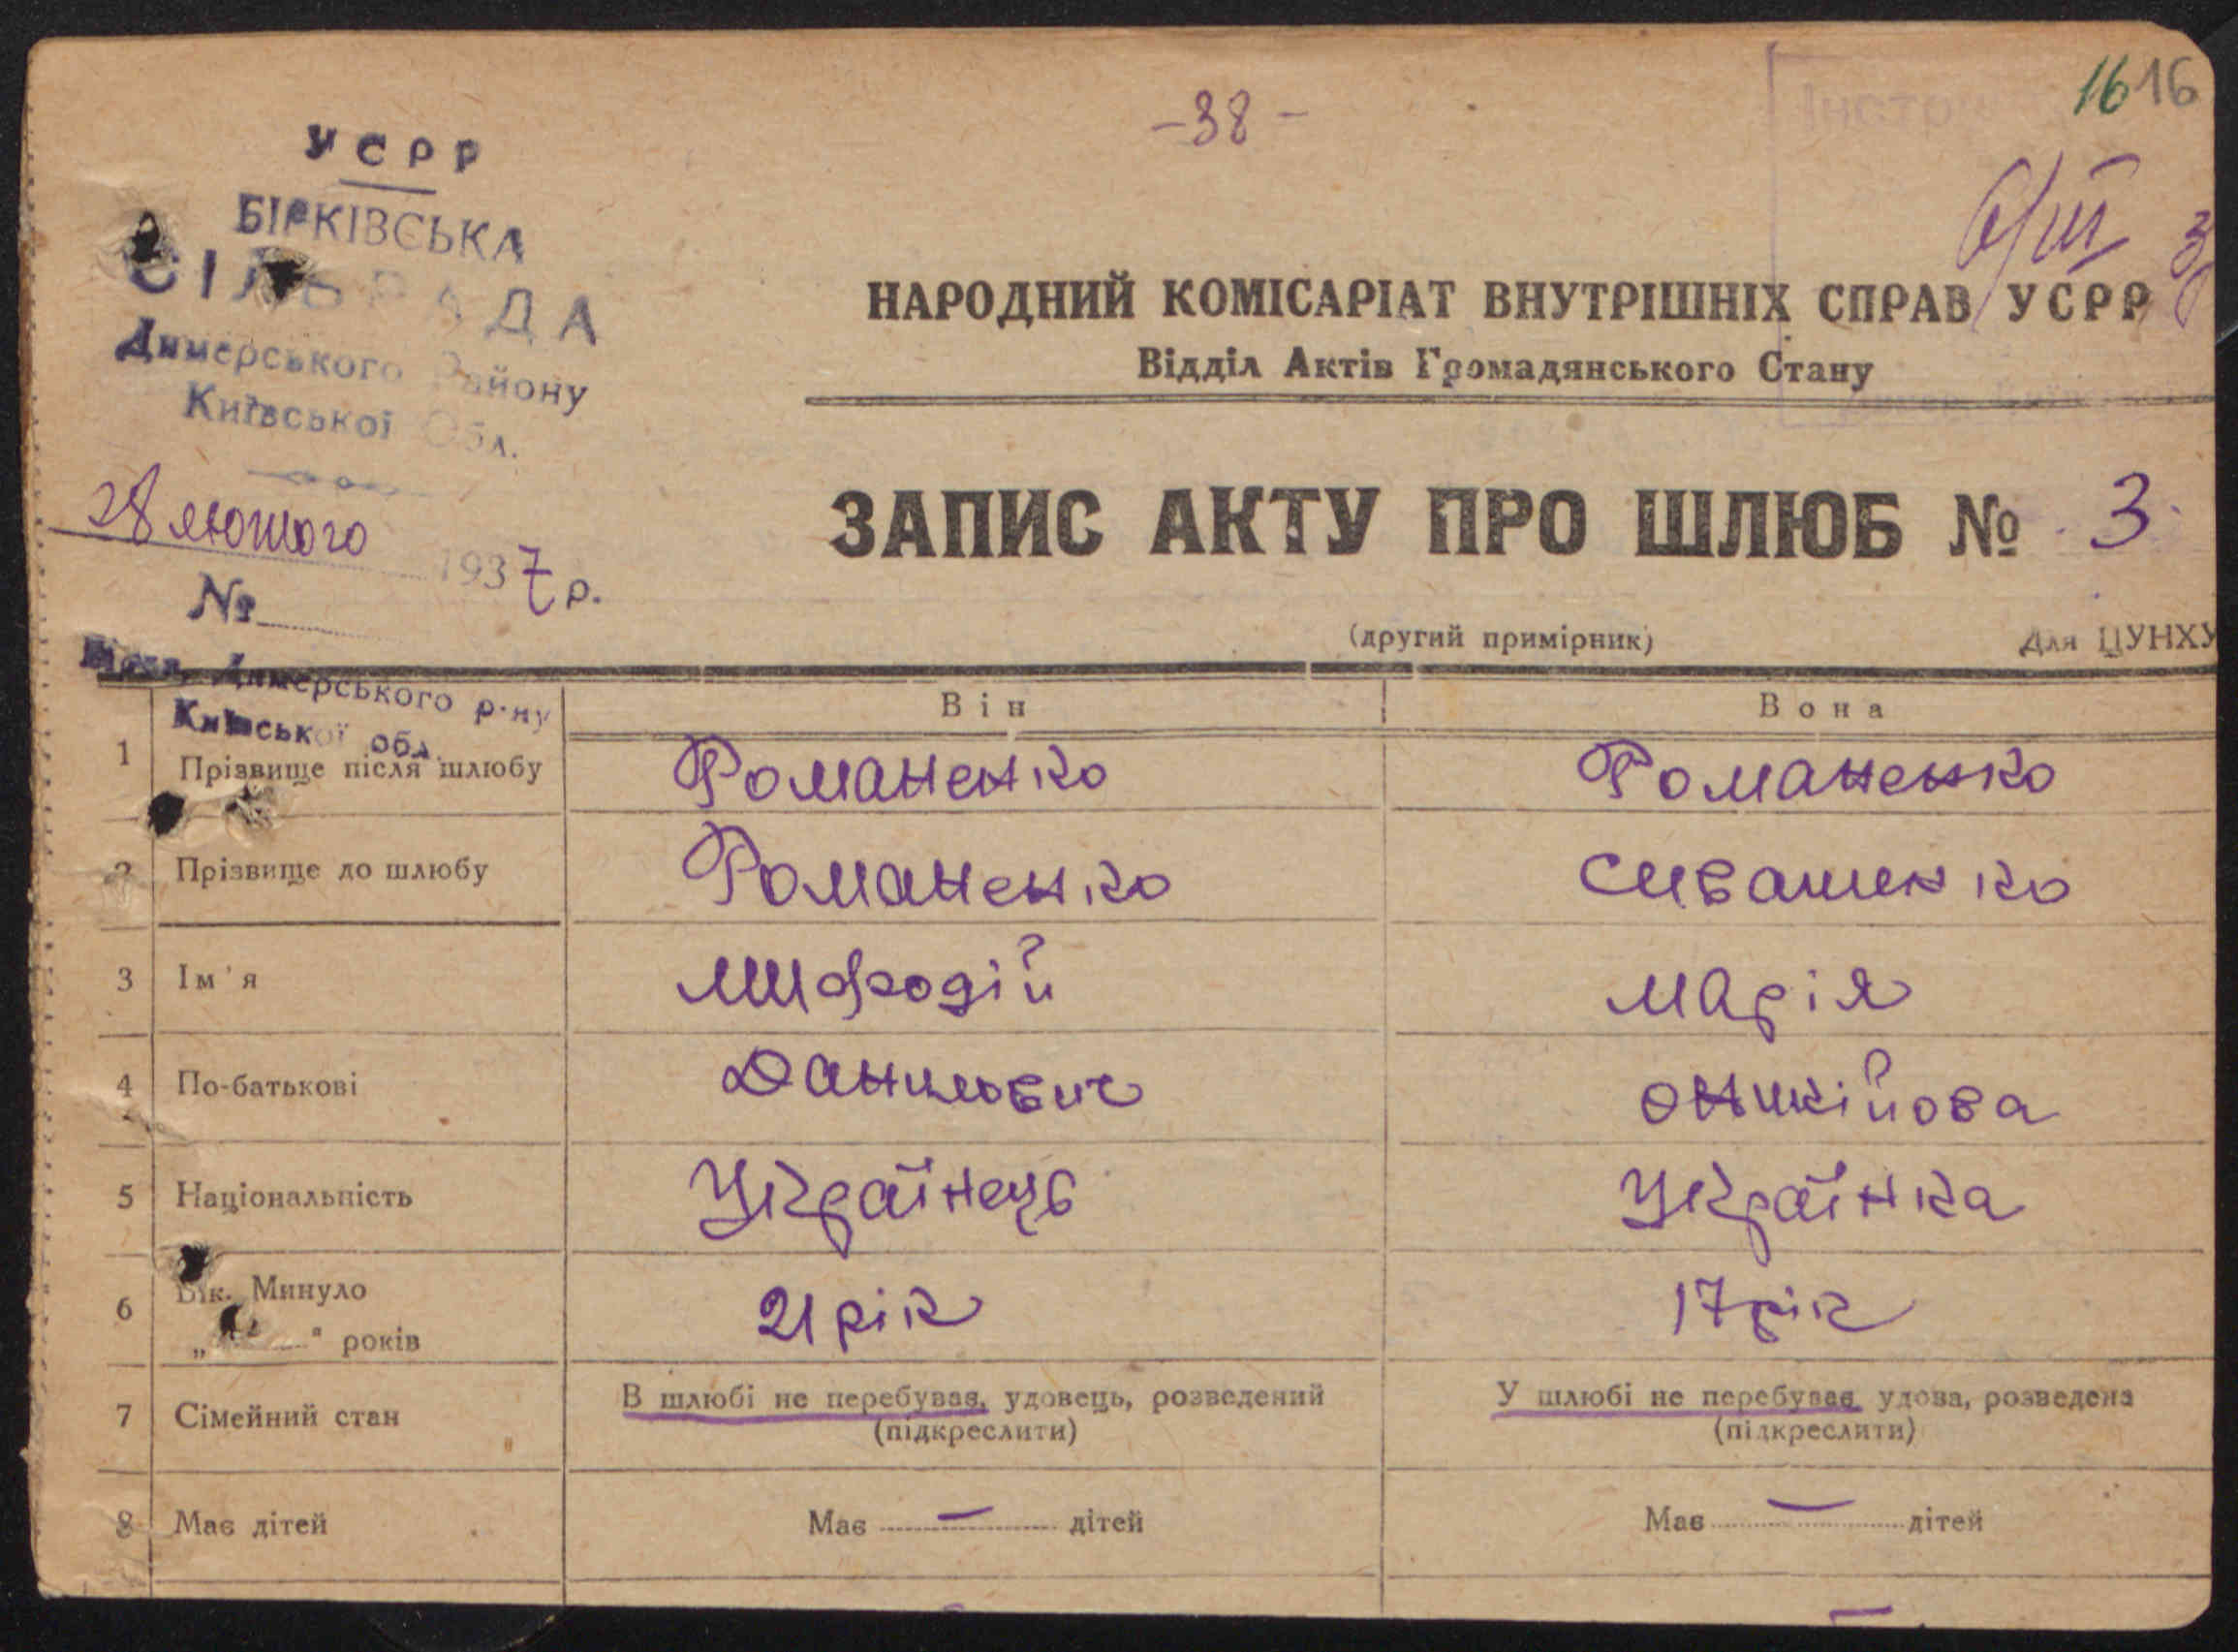 16 16
-38-
УСРР
БІРКІВСЬКА
СІЛЬРАДА
Димерського Району
Київської Обл.
28 лютого 1937 р.
№
6/III
НАРОДНИЙ КОМІСАРІАТ ВНУТРІШНІХ СПРАВ УСРР
Відділ Актів Громадянського Стану
ЗАПИС АКТУ ПРО ШЛЮБ № 3
(другий примірник) Для ЦУНХУ
Димерського р-ну
Київської обл.
Він Вона
1 Прізвище після шлюбу Романенко Романенко
2 Прізвище до шлюбу Романенко Сивашенко
3 Ім'я Мифодій Марія
4 По-батькові Данилович Оникійова
5 Національність Українець Українка
6 Вік. Минуло 21 рік 17 рік
„ " років
7 Сімейний стан В шлюбі не перебував, удовець, розведений У шлюбі не перебував удова, розведена
(підкреслити) (підкреслити)
8 Має дітей Має — дітей Має — дітей